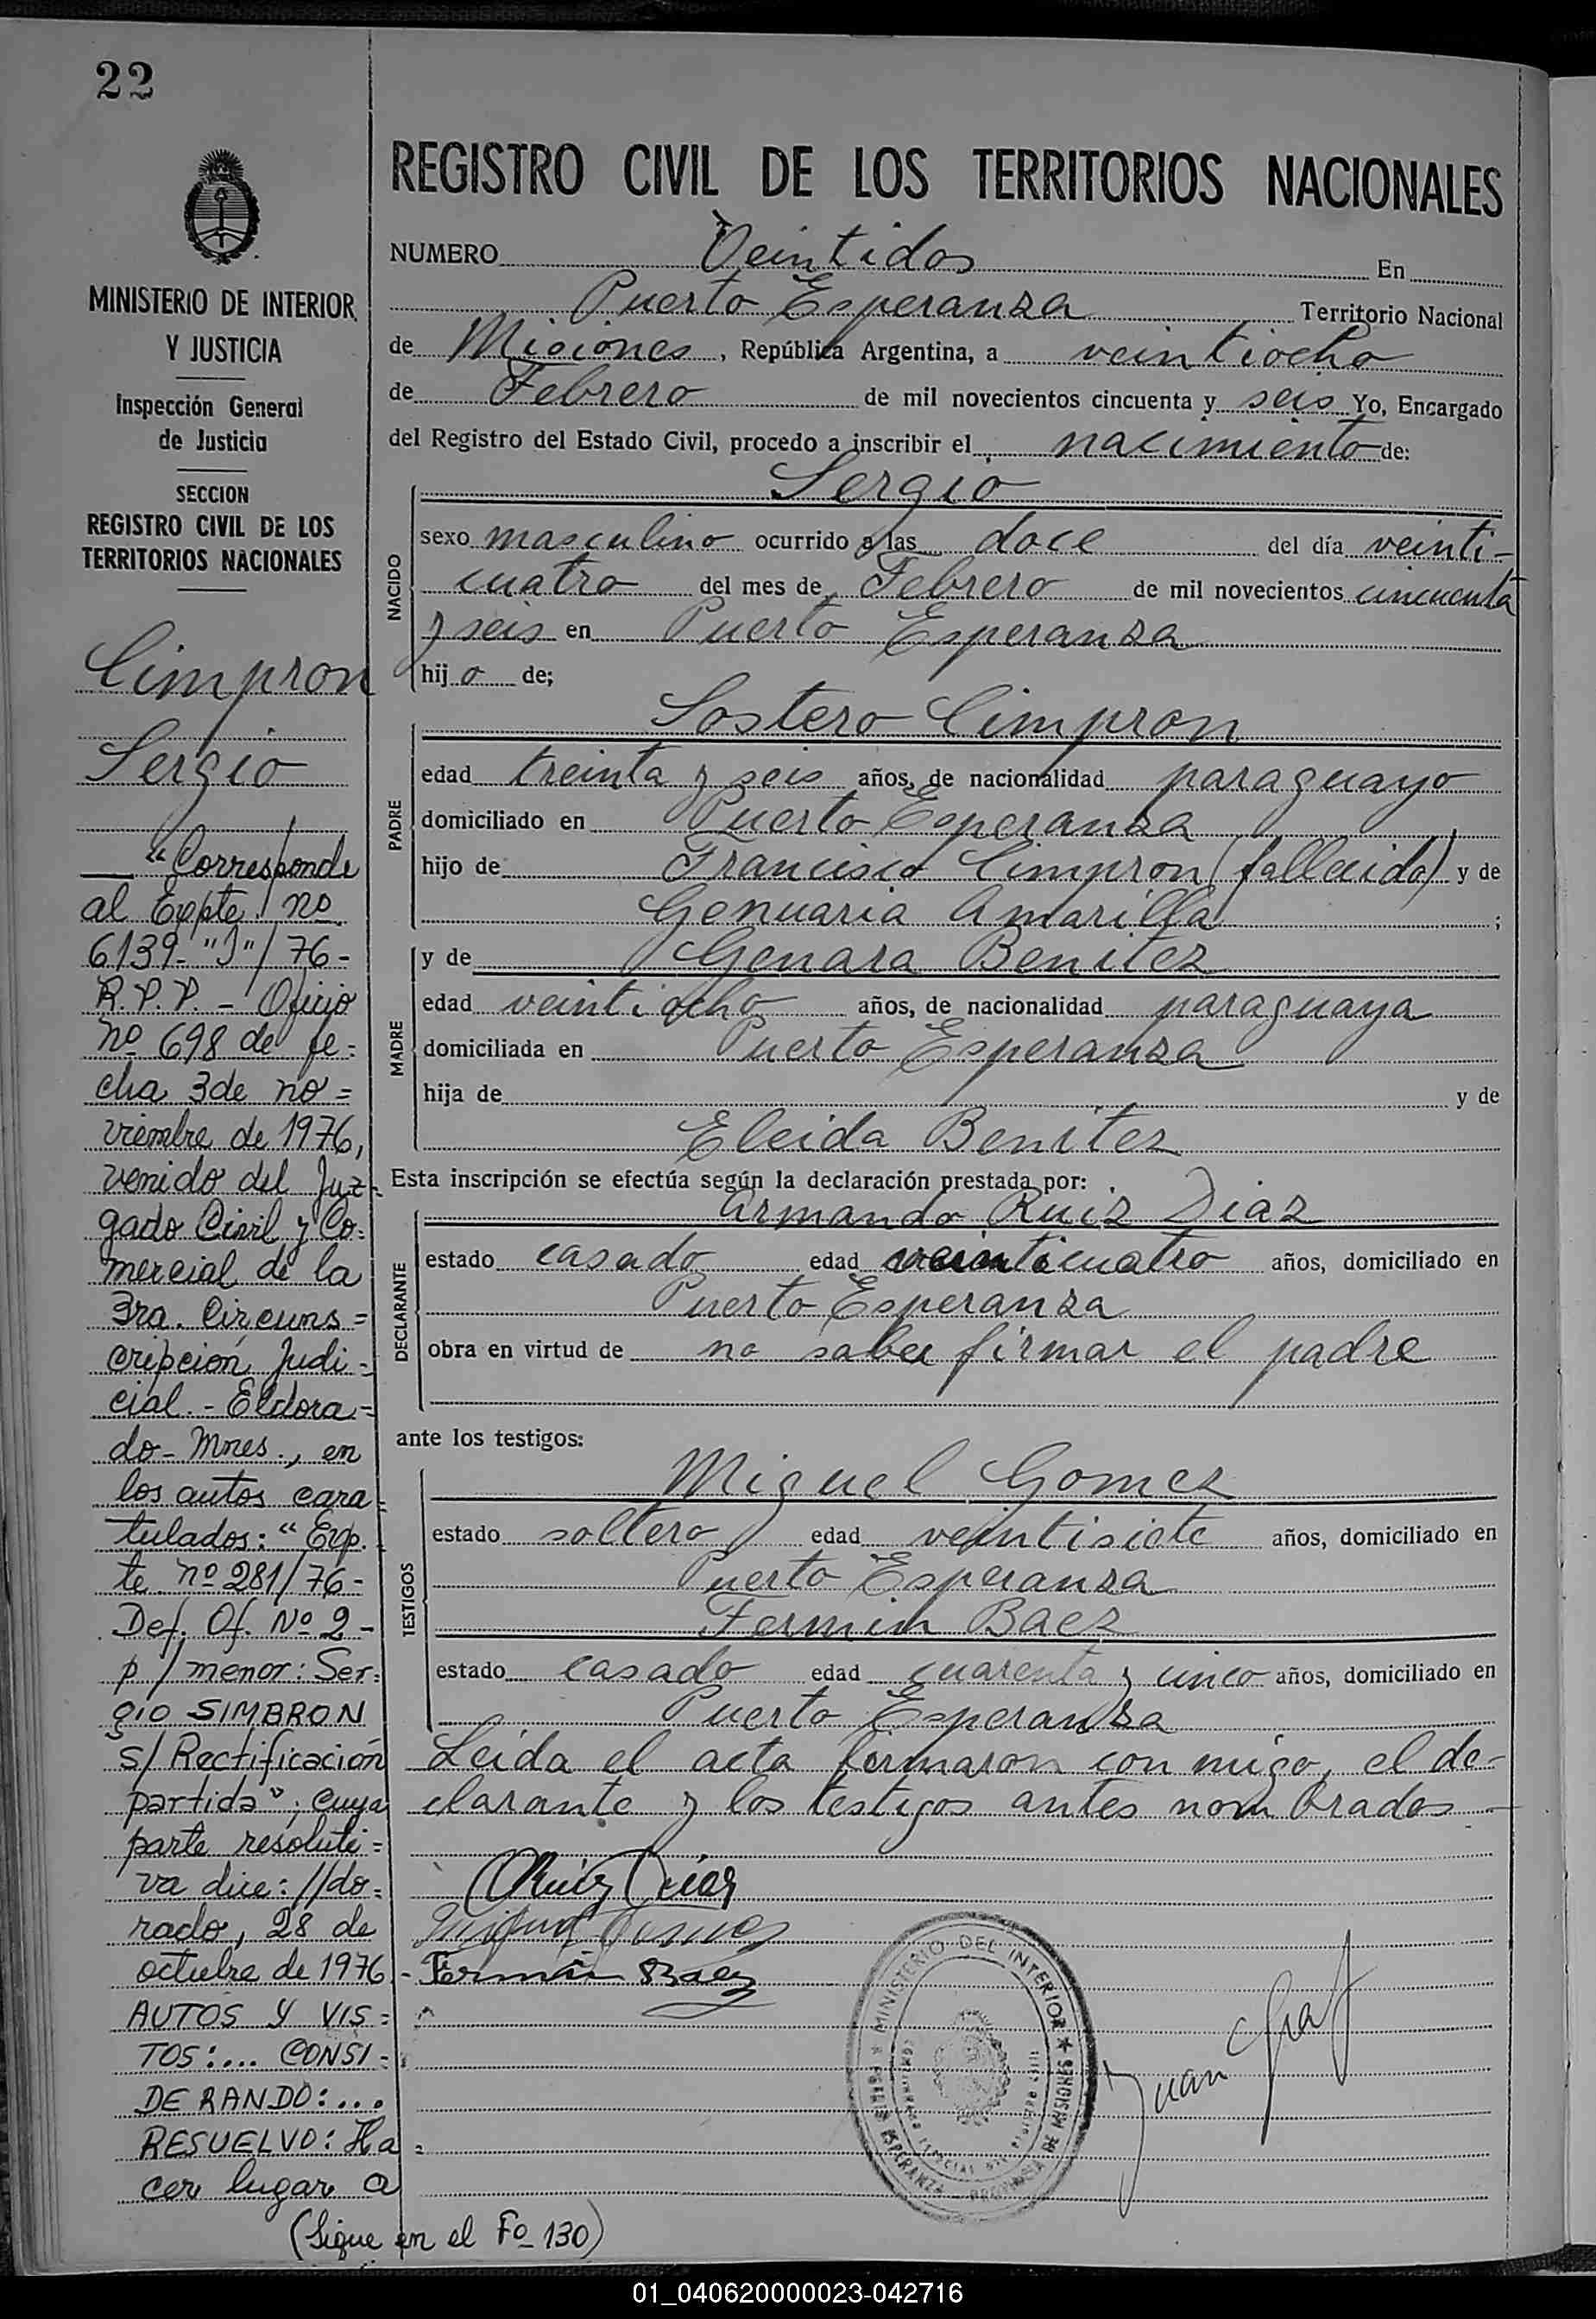 22
MINISTERIO DE INTERIOR
Y JUSTICIA
Inspección General
de Justicia
SECCION
REGISTRO CIVIL DE LOS
TERRITORIOS NACIONALES
Cimpron
Sergio
"Corresponde
al Expte. nº
6139-"J"/76-
R.P.P. - Oficio
nº 698 de fe=
cha 3 de no=
viembre de 1976,
venido del Juz=
gado Civil y Co=
mercial de la
3ra. Circuns=
cripción Judi=
cial.- Eldora=
do- Mnes., en
los autos cara=
tulados: "Exp.
te nº 281/76-
Def. Of. Nº 2-
p/menor: Ser=
gio SIMBRON
s/ Rectificación
partida"; cuya
parte resoluti=
va dice: //do=
rado, 28 de
octubre de 1976.-
AUTOS Y VIS=
TOS:... CONSI=
DERANDO:...
RESUELVO: Ha=
cer lugar a
(Sigue en el Fº 130)
REGISTRO CIVIL DE LOS TERRITORIOS NACIONALES
NUMERO Veintidos En
Puerto Esperanza Territorio Nacional
de Misiones, República Argentina, a veintiocho
de Febrero de mil novecientos cincuenta y seis Yo, Encargado
del Registro del Estado Civil, procedo a inscribir el nacimiento de:
NACIDO
Sergio
sexo masculino ocurrido a las doce del día veinti-
cuatro del mes de Febrero de mil novecientos cincuenta
y seis en Puerto Esperanza
hijo de;
PADRE
Sostero Cimpron
edad treinta y seis años, de nacionalidad paraguayo
domiciliado en Puerto Esperanza
hijo de Francisco Cimpron (fallecido) y de
Genuaria Amarilla;
MADRE
y de Genara Benitez
edad veintiocho años, de nacionalidad paraguaya
domiciliada en Puerto Esperanza
hija de y de
Eleida Benitez
Esta inscripción se efectúa según la declaración prestada por:
DECLARANTE
Armando Ruiz Diaz
estado casado edad veinticuatro años, domiciliado en
Puerto Esperanza
obra en virtud de no saber firmar el padre
ante los testigos:
TESTIGOS
Miguel Gomez
estado soltero edad veintisiete años, domiciliado en
Puerto Esperanza
Fermin Baez
estado casado edad cuarenta y cinco años, domiciliado en
Puerto Esperanza
Leida el acta firmaron con migo, el de-
clarante y los testigos antes nombrados
Ruiz Diaz
Miguel Gomez
Fermin Baez
MINISTERIO DEL INTERIOR
PROVINCIA DE MISIONES
ESPERANZA
Juan Graf
01_040620000023-042716